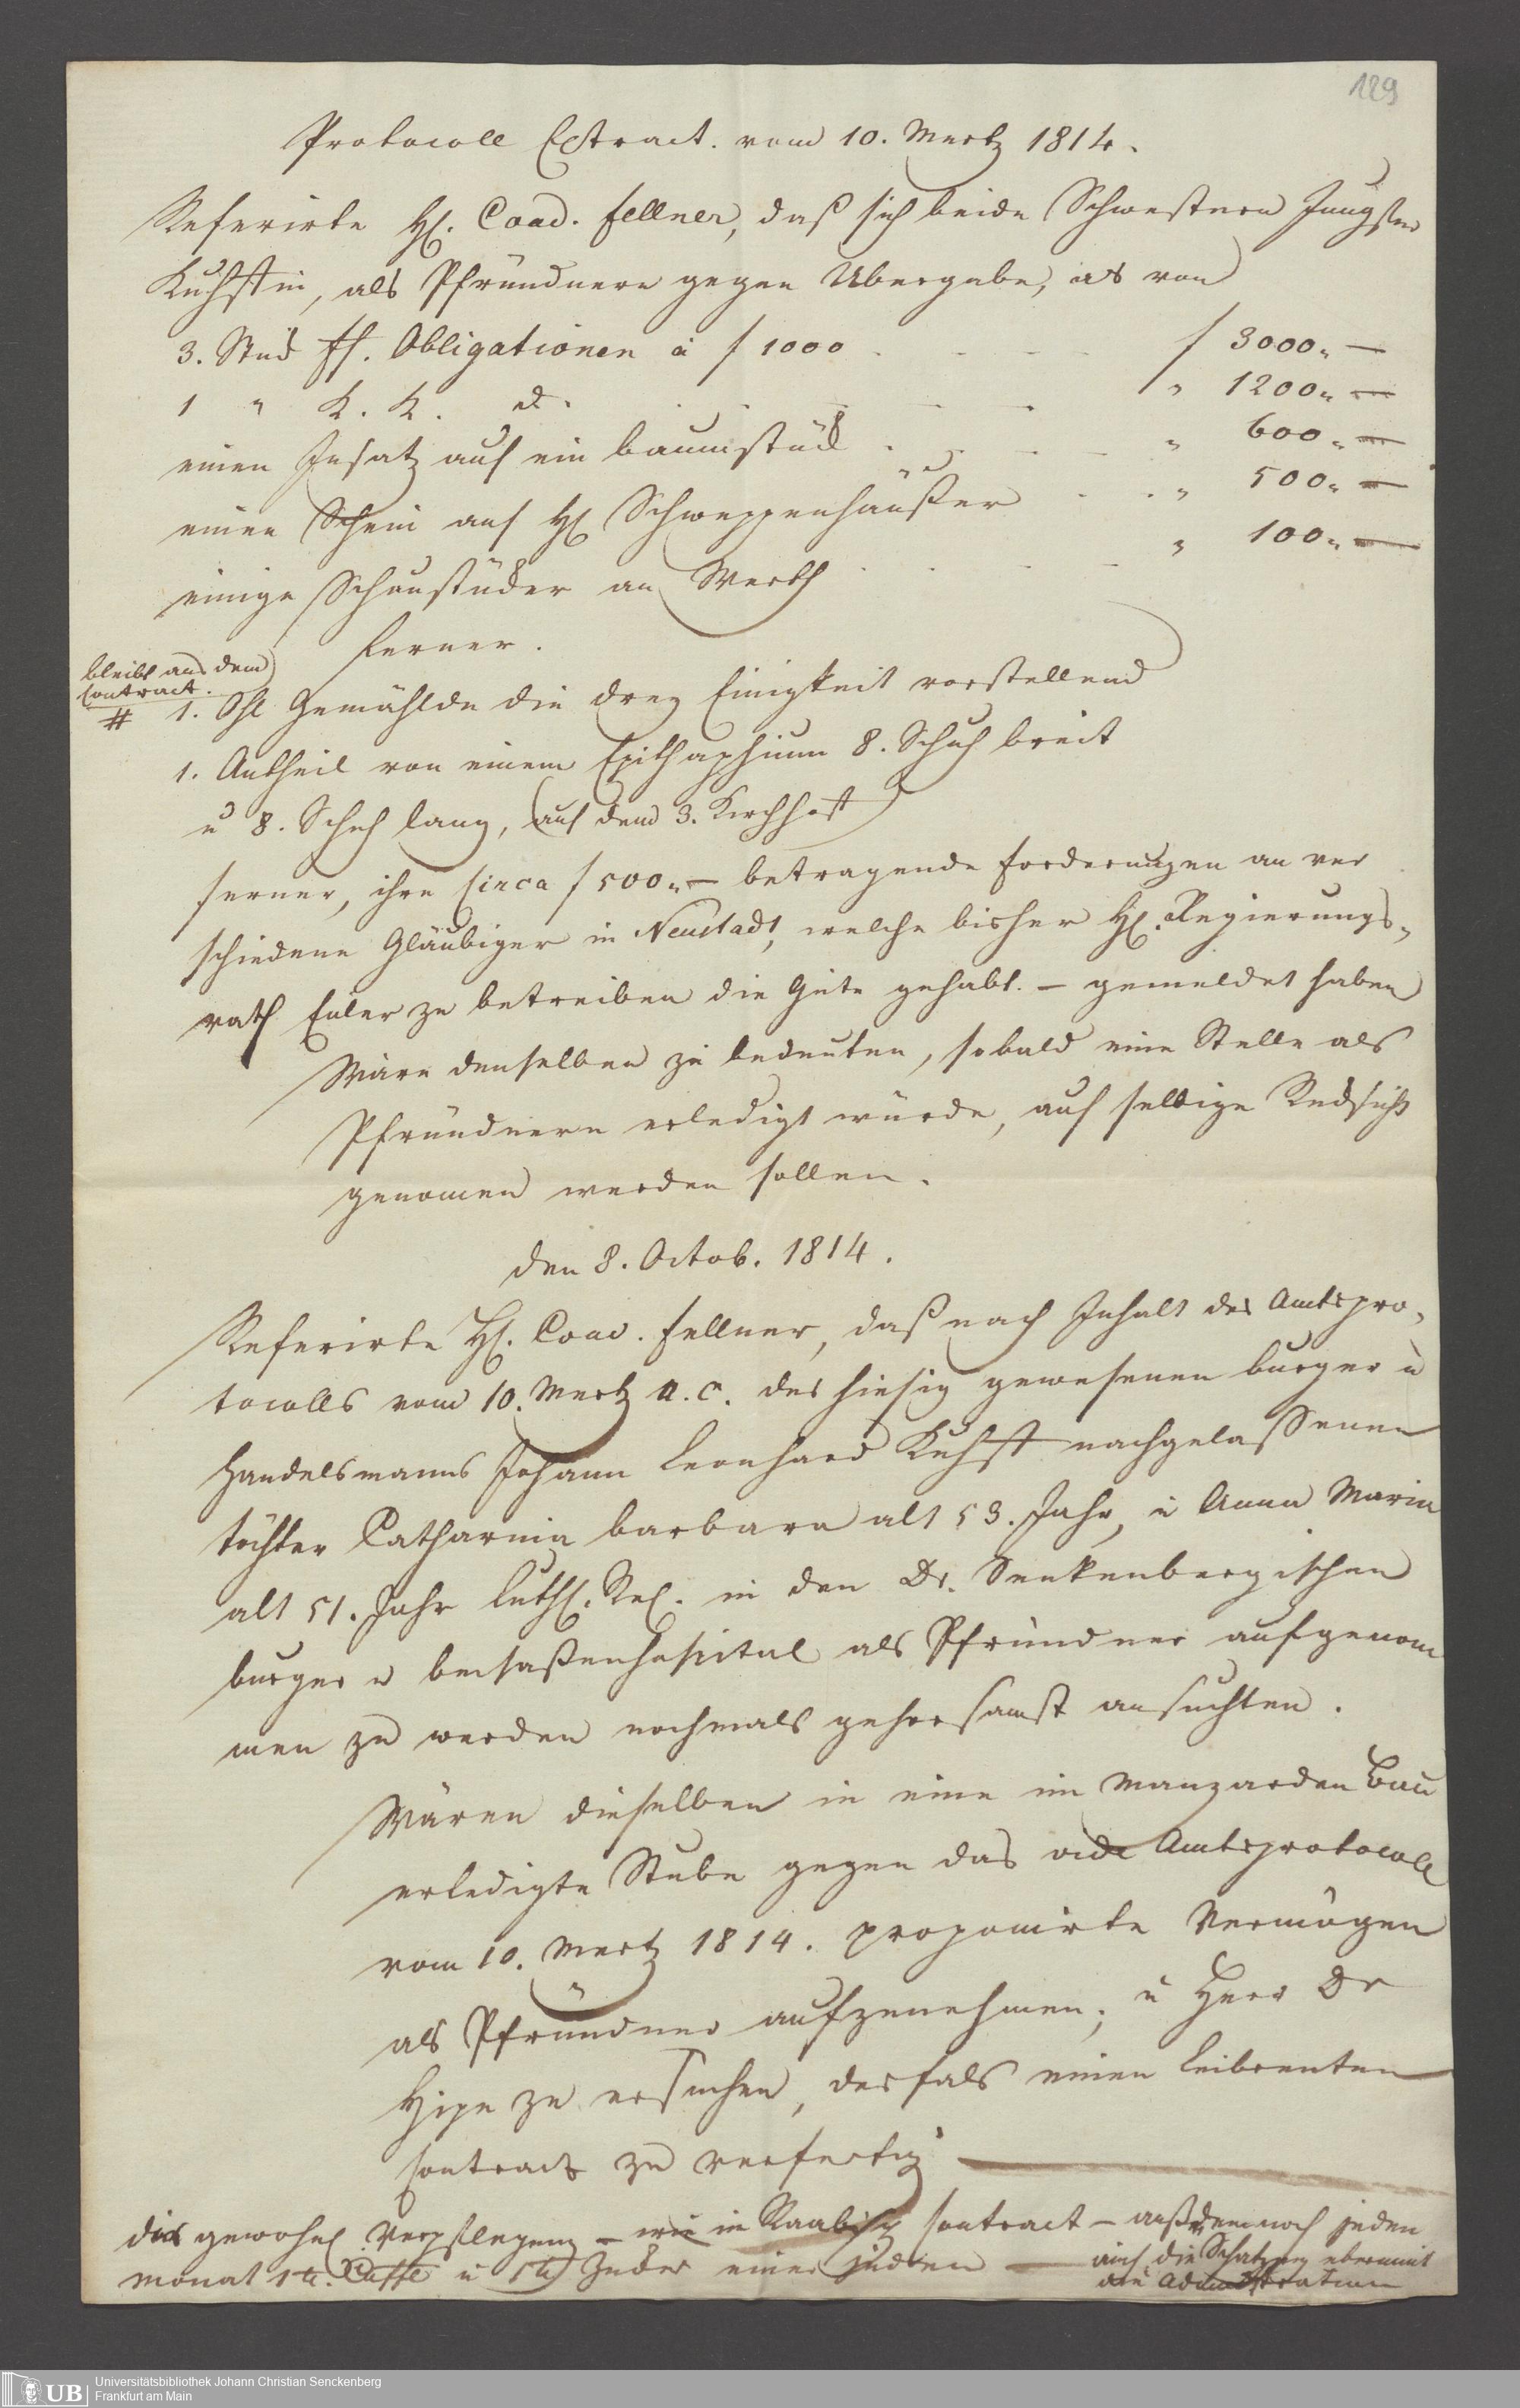 129
Protocoll Extract. vom 10. Mertz 1814.
Referirte H. Coad. Fellner, daß sich beide Schwestern Jungfer
Kuhstin, als Pfründnere gegen Übergabe, als von
3. Stück ff. Obligationen à f 1000 . . . . f 3000„—
1 „ K. K. d. . . . . „ 1200„—
einen Insatz auf ein baumstück . . . . „ 600„—
einen Schein auf H Schweppenhäußer . . „ 500„—
einige Schaustücker an Werth . . . . „ 100„—
ferner.
bleibt aus dem
Contract.
# 1. Öhl Gemählde die drey Einigkeit vorstellend
1. Antheil von einem Epithaphium 8. Schuh breit
u 8. Schuh lang, (auf dem 3. Kirchhoff)
ferner, ihre Circa f 500„— betragende Forderungen an ver
schiedene Gläubiger in Neustadt, welche bisher H. Regierungs„
rath Euler zu betreiben die Güte gehabt. — gemeldet haben
Wäre denselben zu bedeuten, sobald eine Stelle als
Pfründnere erledigt würde, auf selbige Rücksicht
genomen werden sollen.
den 8. Octob. 1814.
Referirte H. Coad. Fellner, daß nach Inhalt des Amtspro„
tocolls vom 10. Mertz a. c. des hiesig gewesenen burger u
Handelsmanns Johann Leonhard Kuhst nachgelassenen
töchter Catharina barbara alt 53. Jahr, u Anna Maria
alt 51. Jahr luth. Rel. in den Dr. Senkenbergischen
burger u beisaßenhospital als Pfründner aufgenom
men zu werden nochmals gehorsamst ansuchten.
Wären dieselben in eine im Manzarden Bau
erledigte Stube gegen das vide Amtsprotocoll
vom 10. Mertz 1814. proponirte Vermögen
als Pfründner aufzunehmen; u Herr Dr
Hipe zu ersuchen, desfals einen Leibrenten
Contract zu verfertig
die gewohnl Verpflegung — wie in Contract — außdem noch jeden
monat 1 ℔. Caffe u 1 ℔ Zucker einer jeden — auch die Schatzung übernimt
die Administration
UB Universitätsbibliothek Johann Christian Senckenberg
Frankfurt am Main